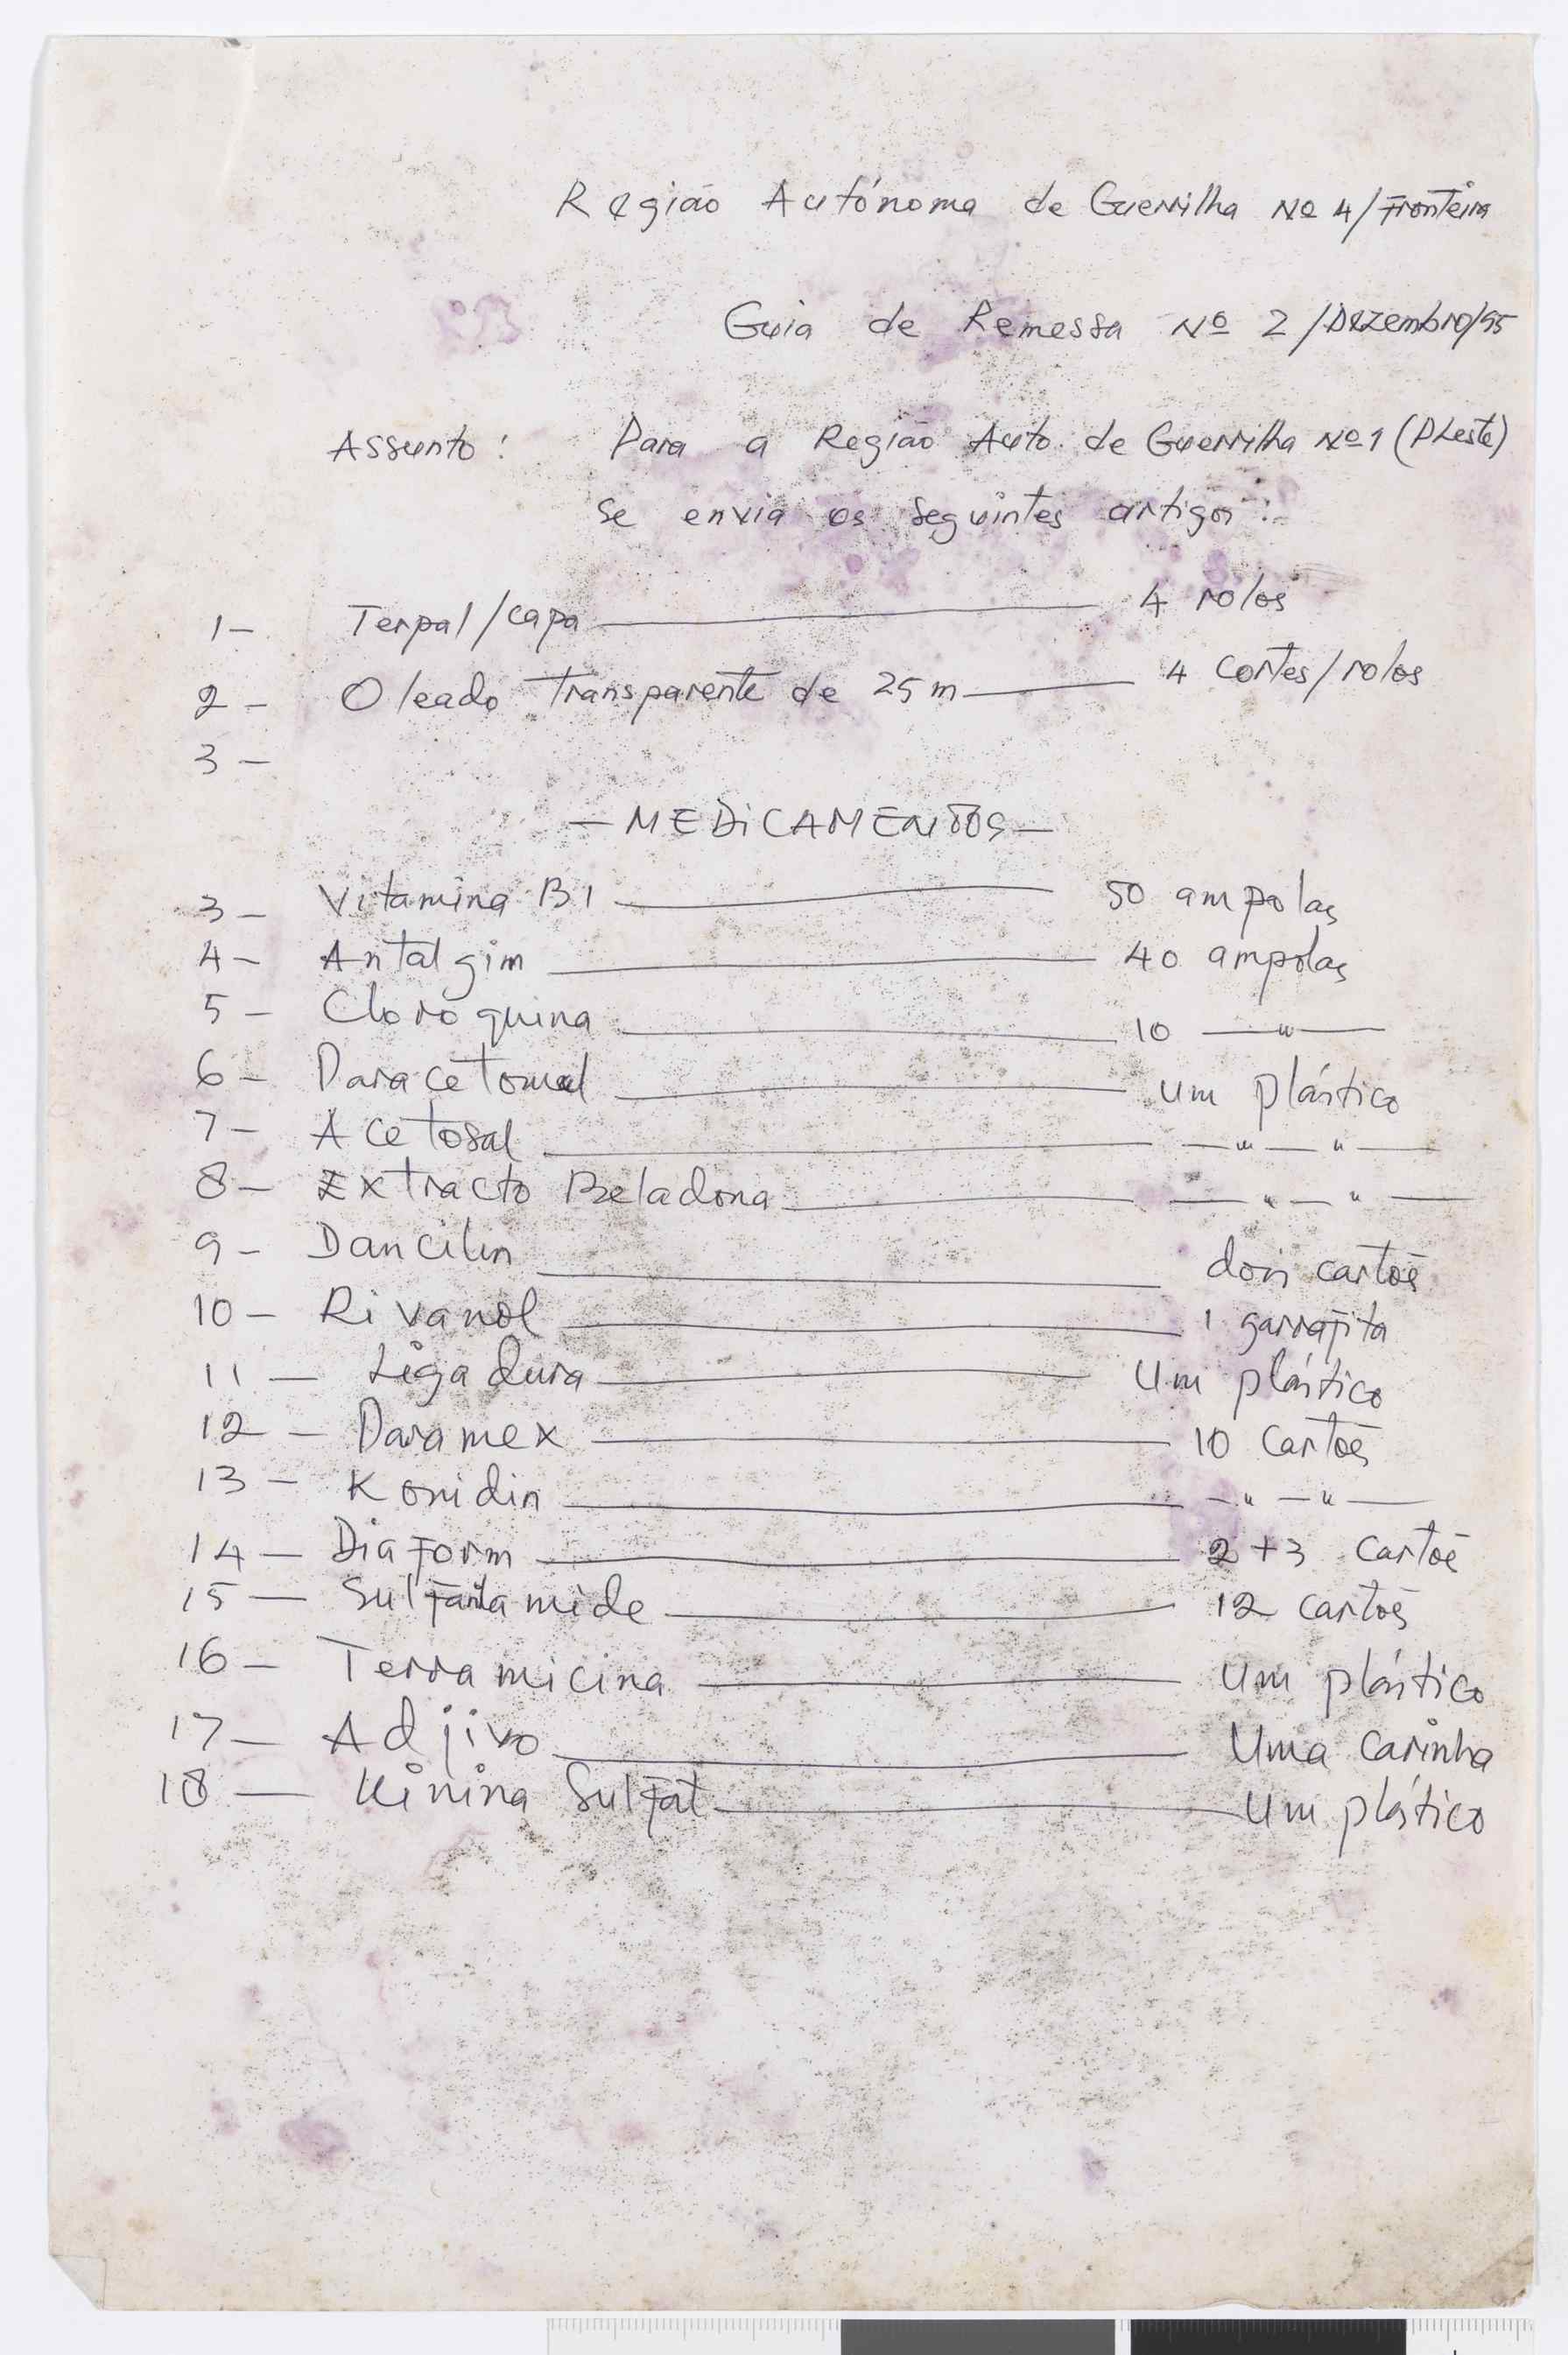 Região Autónoma de Guerrilha Nº 4/Fronteira
Guia de Remessa Nº 2/Dezembro/95
Assunto: Para a Região Auto. de Guerrilha Nº 1 (PLeste)
se envia os seguintes artigos:
1- Terpal/capa — 4 rolos
2- Oleado transparente de 25m — 4 cortes/rolos
3-
- MEDICAMENTOS -
3- Vitamina B1 — 50 ampolas
4- Antalgim — 40 ampolas
5- Cloroquina — 10 — " —
6- Paracetomal — um plástico
7- Acetosal — " — " —
8- Extracto Beladona — " — " —
9- Pancilin — dois cartõs
10- Rivanol — 1 garrafita
11- Ligadura — Um plástico
12- Paramex — 10 Cartõs
13- Konidin — " — " —
14- Diaform — 2+3 Cartõs
15- Sulfanlamide — 12 cartõs
16- Terramicina — Um plástico
17- Adjivo — Uma carinha
18- Kinina Sulfat — Um plástico